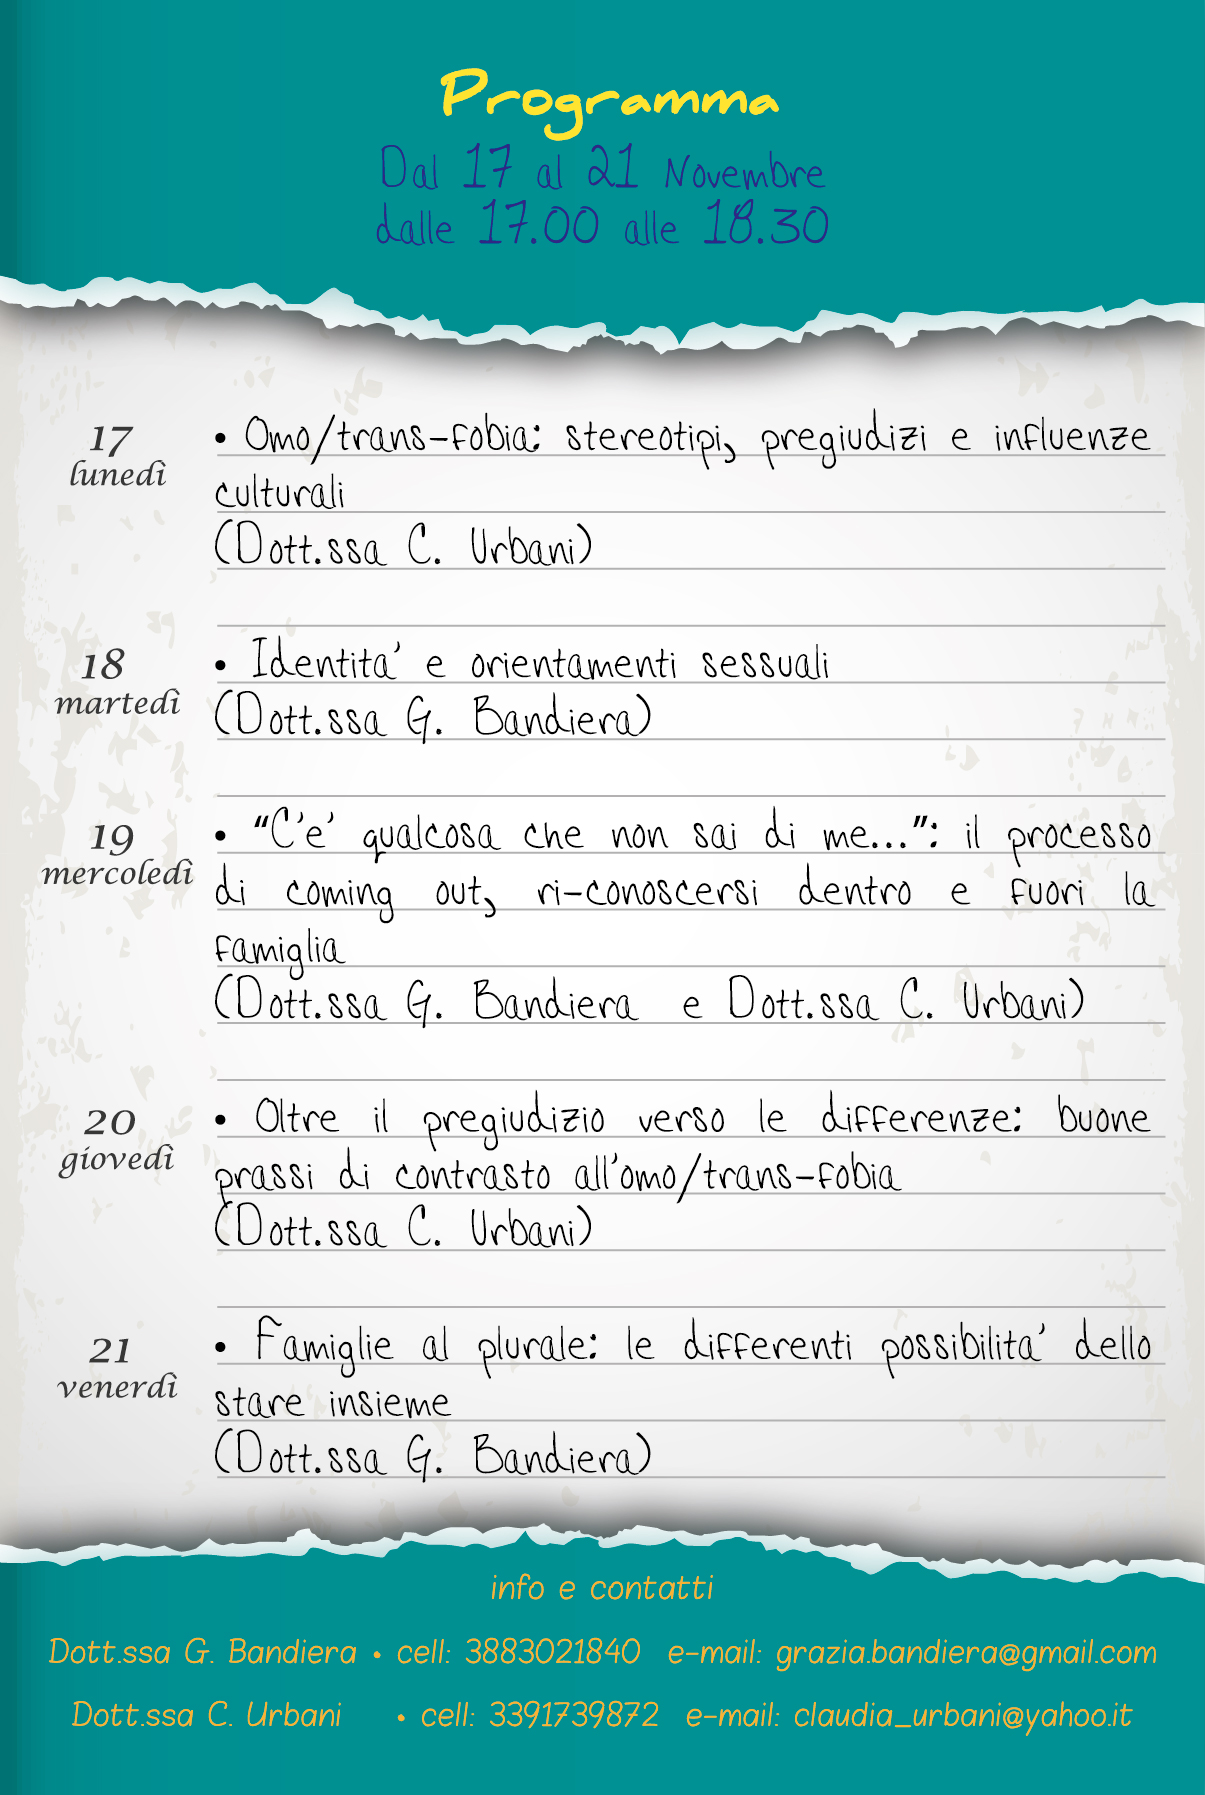 Programma
Dal 17 al 21 Novembre
dalle 17.00 alle 18.30
17
lunedì
• Omo/trans-fobia: stereotipi, pregiudizi e influenze
culturali
(Dott.ssa C. Urbani)
18
martedì
• Identita' e orientamenti sessuali
(Dott.ssa G. Bandiera)
19
mercoledì
• "C'e' qualcosa che non sai di me...": il processo
di coming out, ri-conoscersi dentro e fuori la
famiglia
(Dott.ssa G. Bandiera e Dott.ssa C. Urbani)
20
giovedì
• Oltre il pregiudizio verso le differenze: buone
prassi di contrasto all'omo/trans-fobia
(Dott.ssa C. Urbani)
21
venerdì
• Famiglie al plurale: le differenti possibilita' dello
stare insieme
(Dott.ssa G. Bandiera)
info e contatti
Dott.ssa G. Bandiera • cell: 3883021840 e-mail: grazia.bandiera@gmail.com
Dott.ssa C. Urbani • cell: 3391739872 e-mail: claudia_urbani@yahoo.it